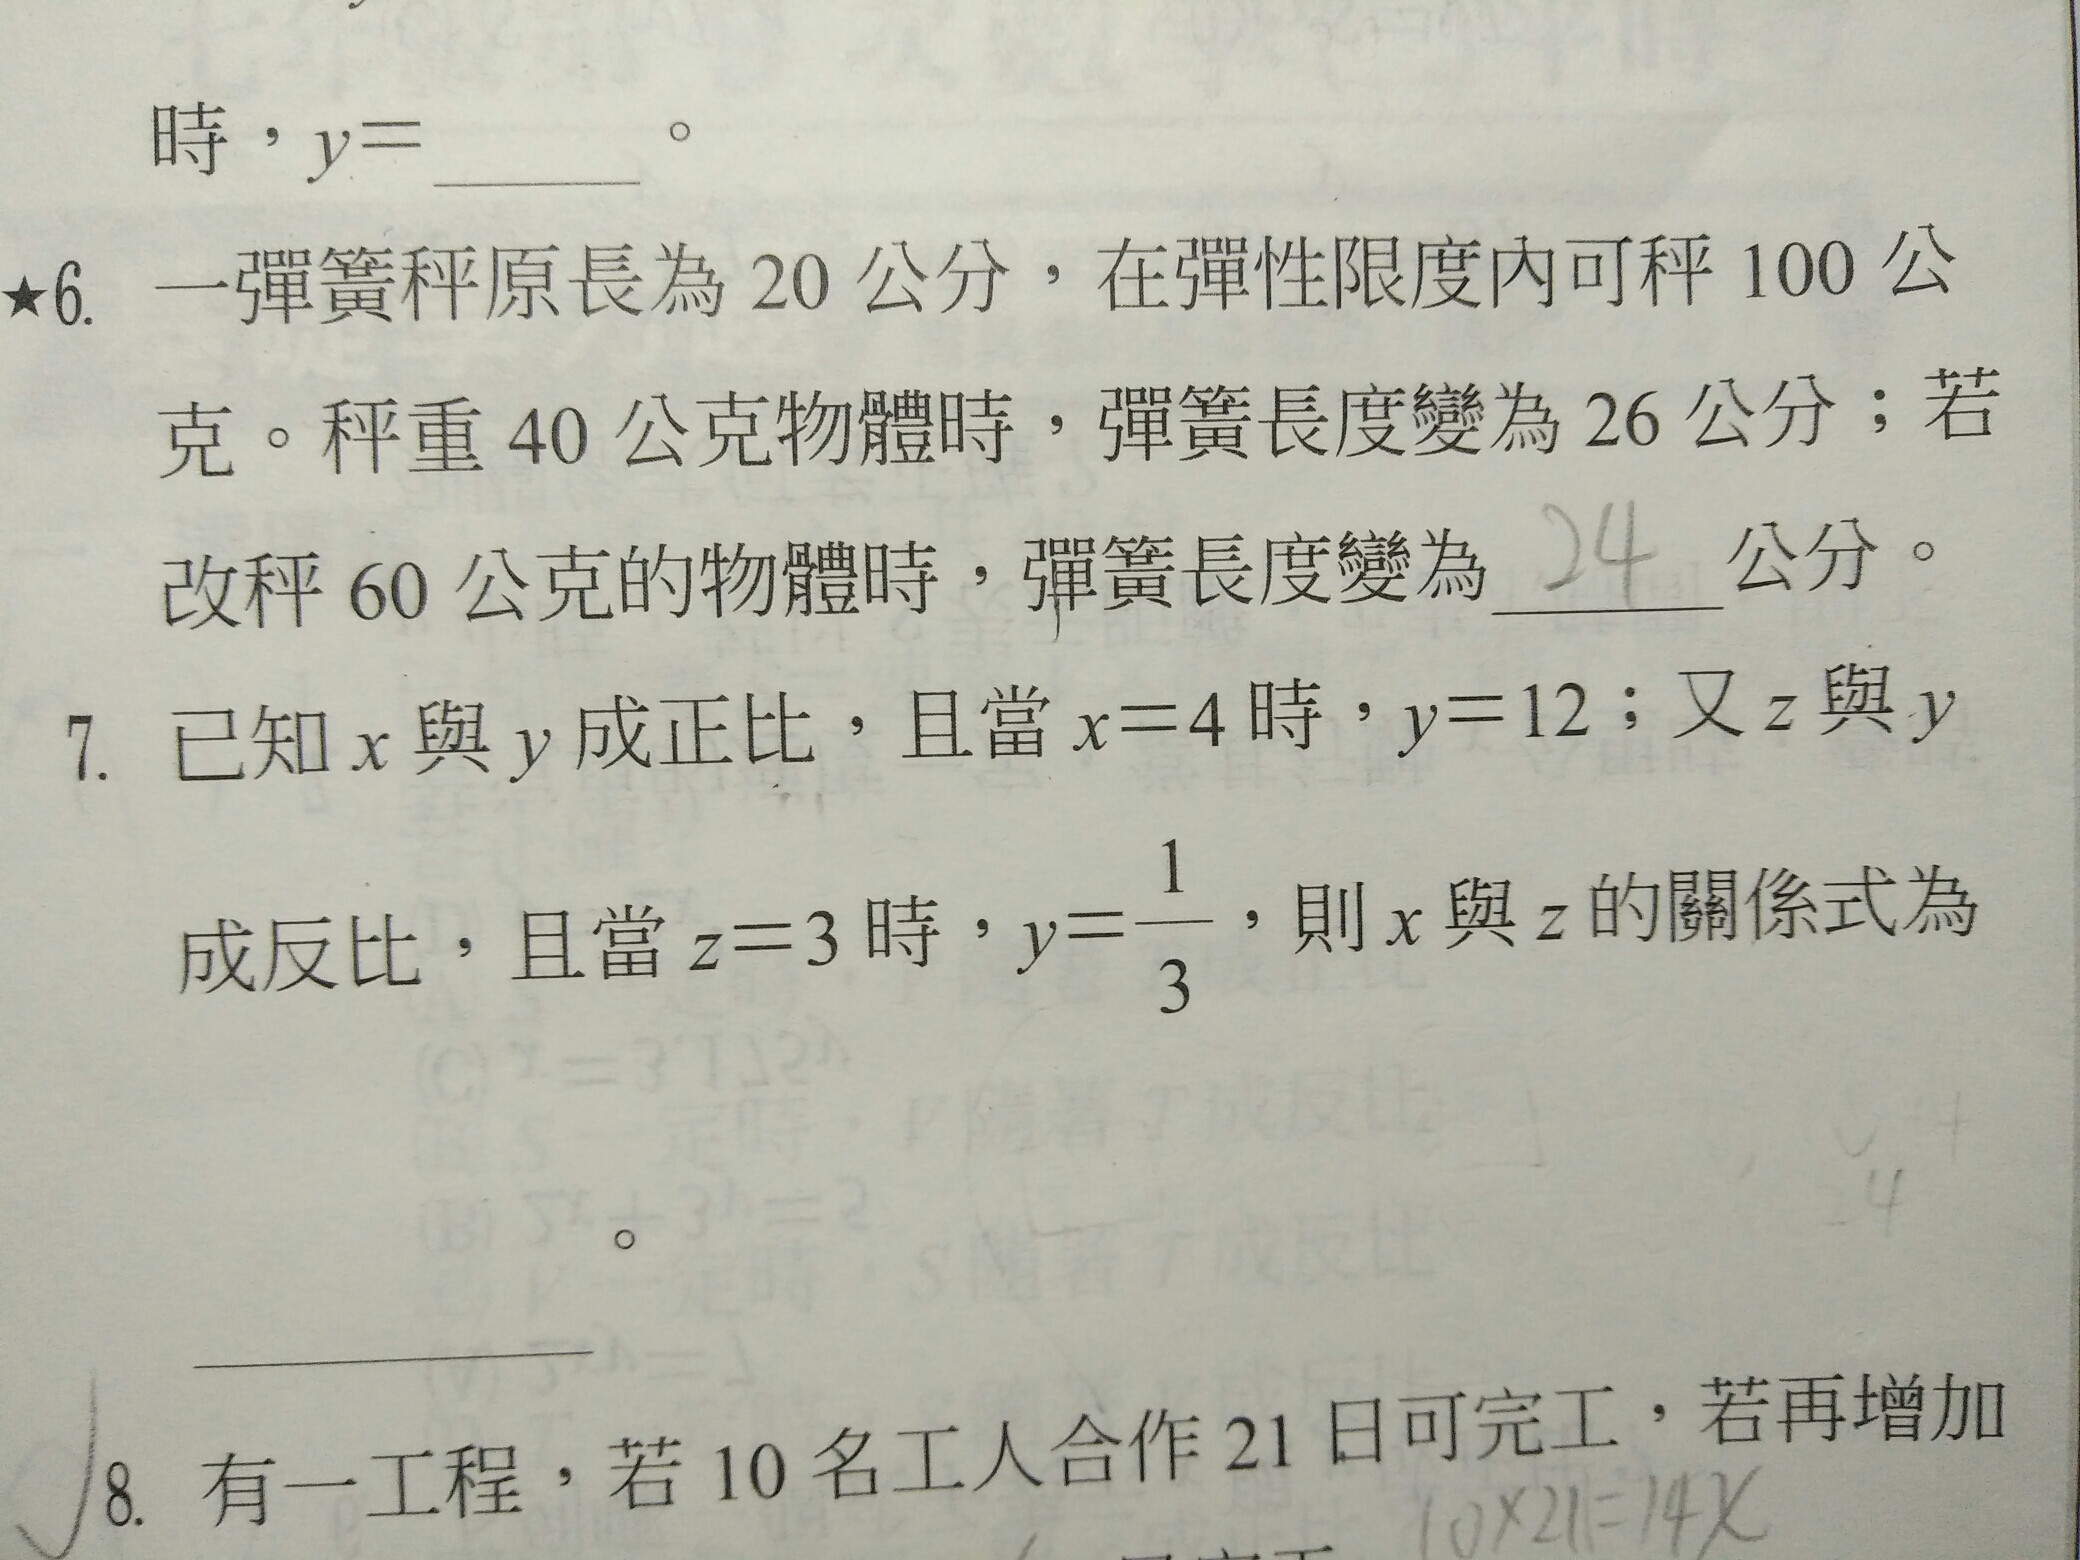 時，y=____。
★6. 一彈簧秤原長為 20 公分，在彈性限度內可秤 100 公
克。秤重 40 公克物體時，彈簧長度變為 26 公分；若
改秤 60 公克的物體時，彈簧長度變為 24 公分。
7. 已知 x 與 y 成正比，且當 x=4 時，y=12；又 z 與 y
成反比，且當 z=3 時，y=1/3，則 x 與 z 的關係式為
4
________。
8. 有一工程，若 10 名工人合作 21 日可完工，若再增加
10×21=14x